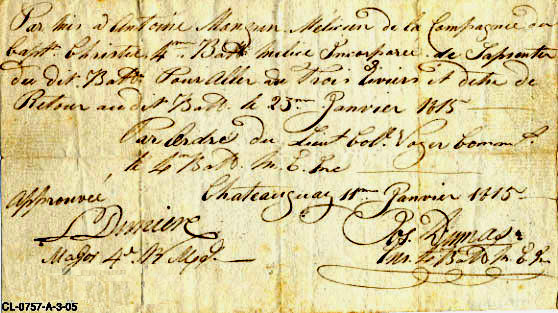 Par his à Antoine Mangun Melicien de la Compagnie du
Capt. Christie 4me Batt. milice Incorporée de Sapsenter
du dit Battn Pour Aller au Trois Riviers et d'etre de
Retour au dit Batt. le 25me Janvier 1815
Par Ordre du Lieut Coll. Voyer Comm.t
le 4m Battn. M. E. Inc
Chateauguay 11me Janvier 1815
Approuvée
L Duniere
Major 4e Bn
Jos. Dumas
4 Battn M. E. In
CL-0757-A-3-05